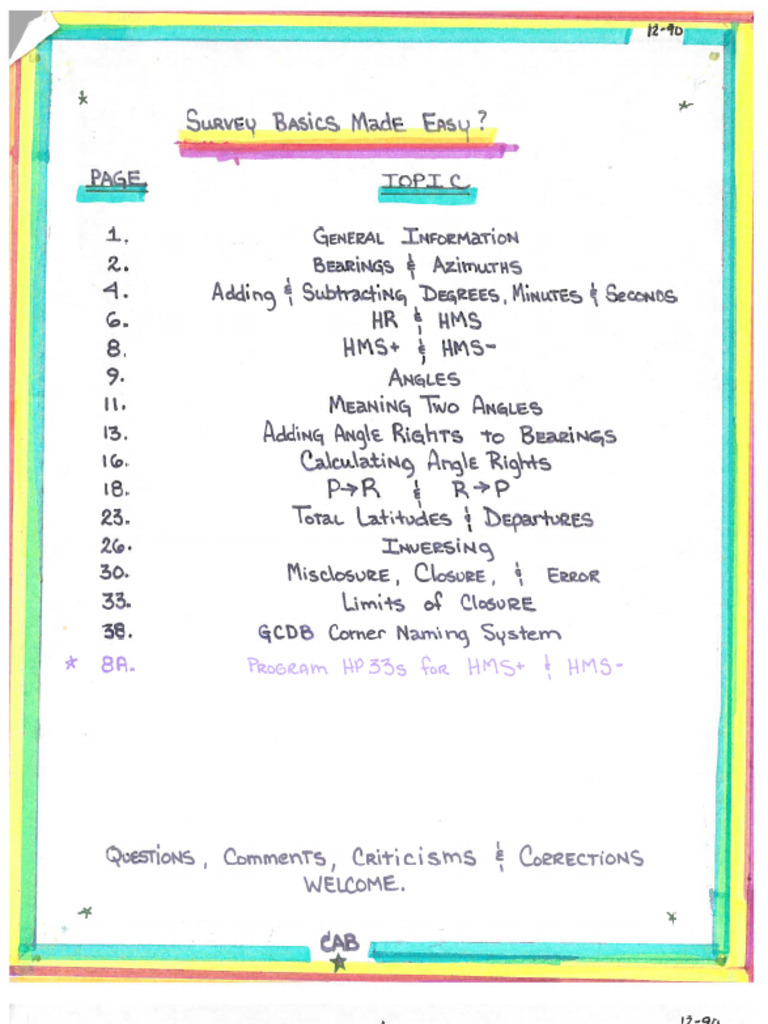 12-90
SURVEY BASICS MADE EASY?
PAGE TOPIC
1. GENERAL INFORMATION
2. BEARINGS & AZIMUTHS
4. Adding & SUBTRACTING DEGREES, MINUTES & SECONDS
6. HR & HMS
8. HMS+ & HMS-
9. ANGLES
11. MEANING TWO ANGLES
13. Adding Angle Rights to BEARINGS
16. Calculating Angle Rights
18. P→R & R→P
23. TOTAL LATITUDES & DEPARTURES
26. INVERSING
30. MISCLOSURE, CLOSURE, & ERROR
33. Limits of CLOSURE
38. GCDB Corner Naming System
* 8A. PROGRAM HP33s for HMS+ & HMS-
QUESTIONS, COMMENTS, CRITICISMS & CORRECTIONS
WELCOME.
CAB
12-90